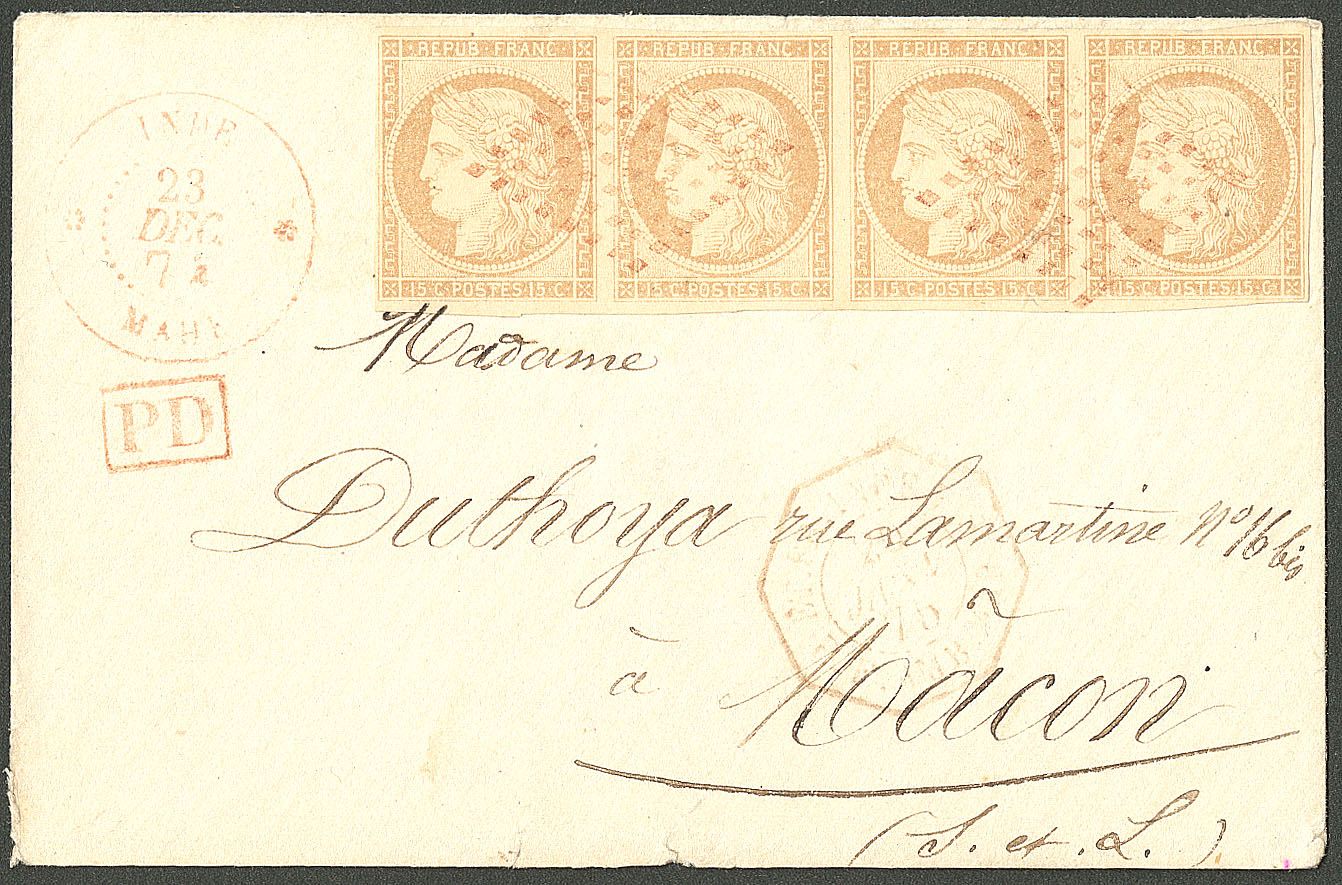 REPUB·FRANC· REPUB·FRANC· REPUB·FRANC· REPUB·FRANC·
15·C·POSTES·15·C· 15·C·POSTES·15·C· 15·C·POSTES·15·C· 15·C·POSTES·15·C·
INDE
23
DEC.
MAHE
PD
Madame
Duthoya rue Lamartine No 16 bis
à Mâcon
(S. et. L.)
JANV
75